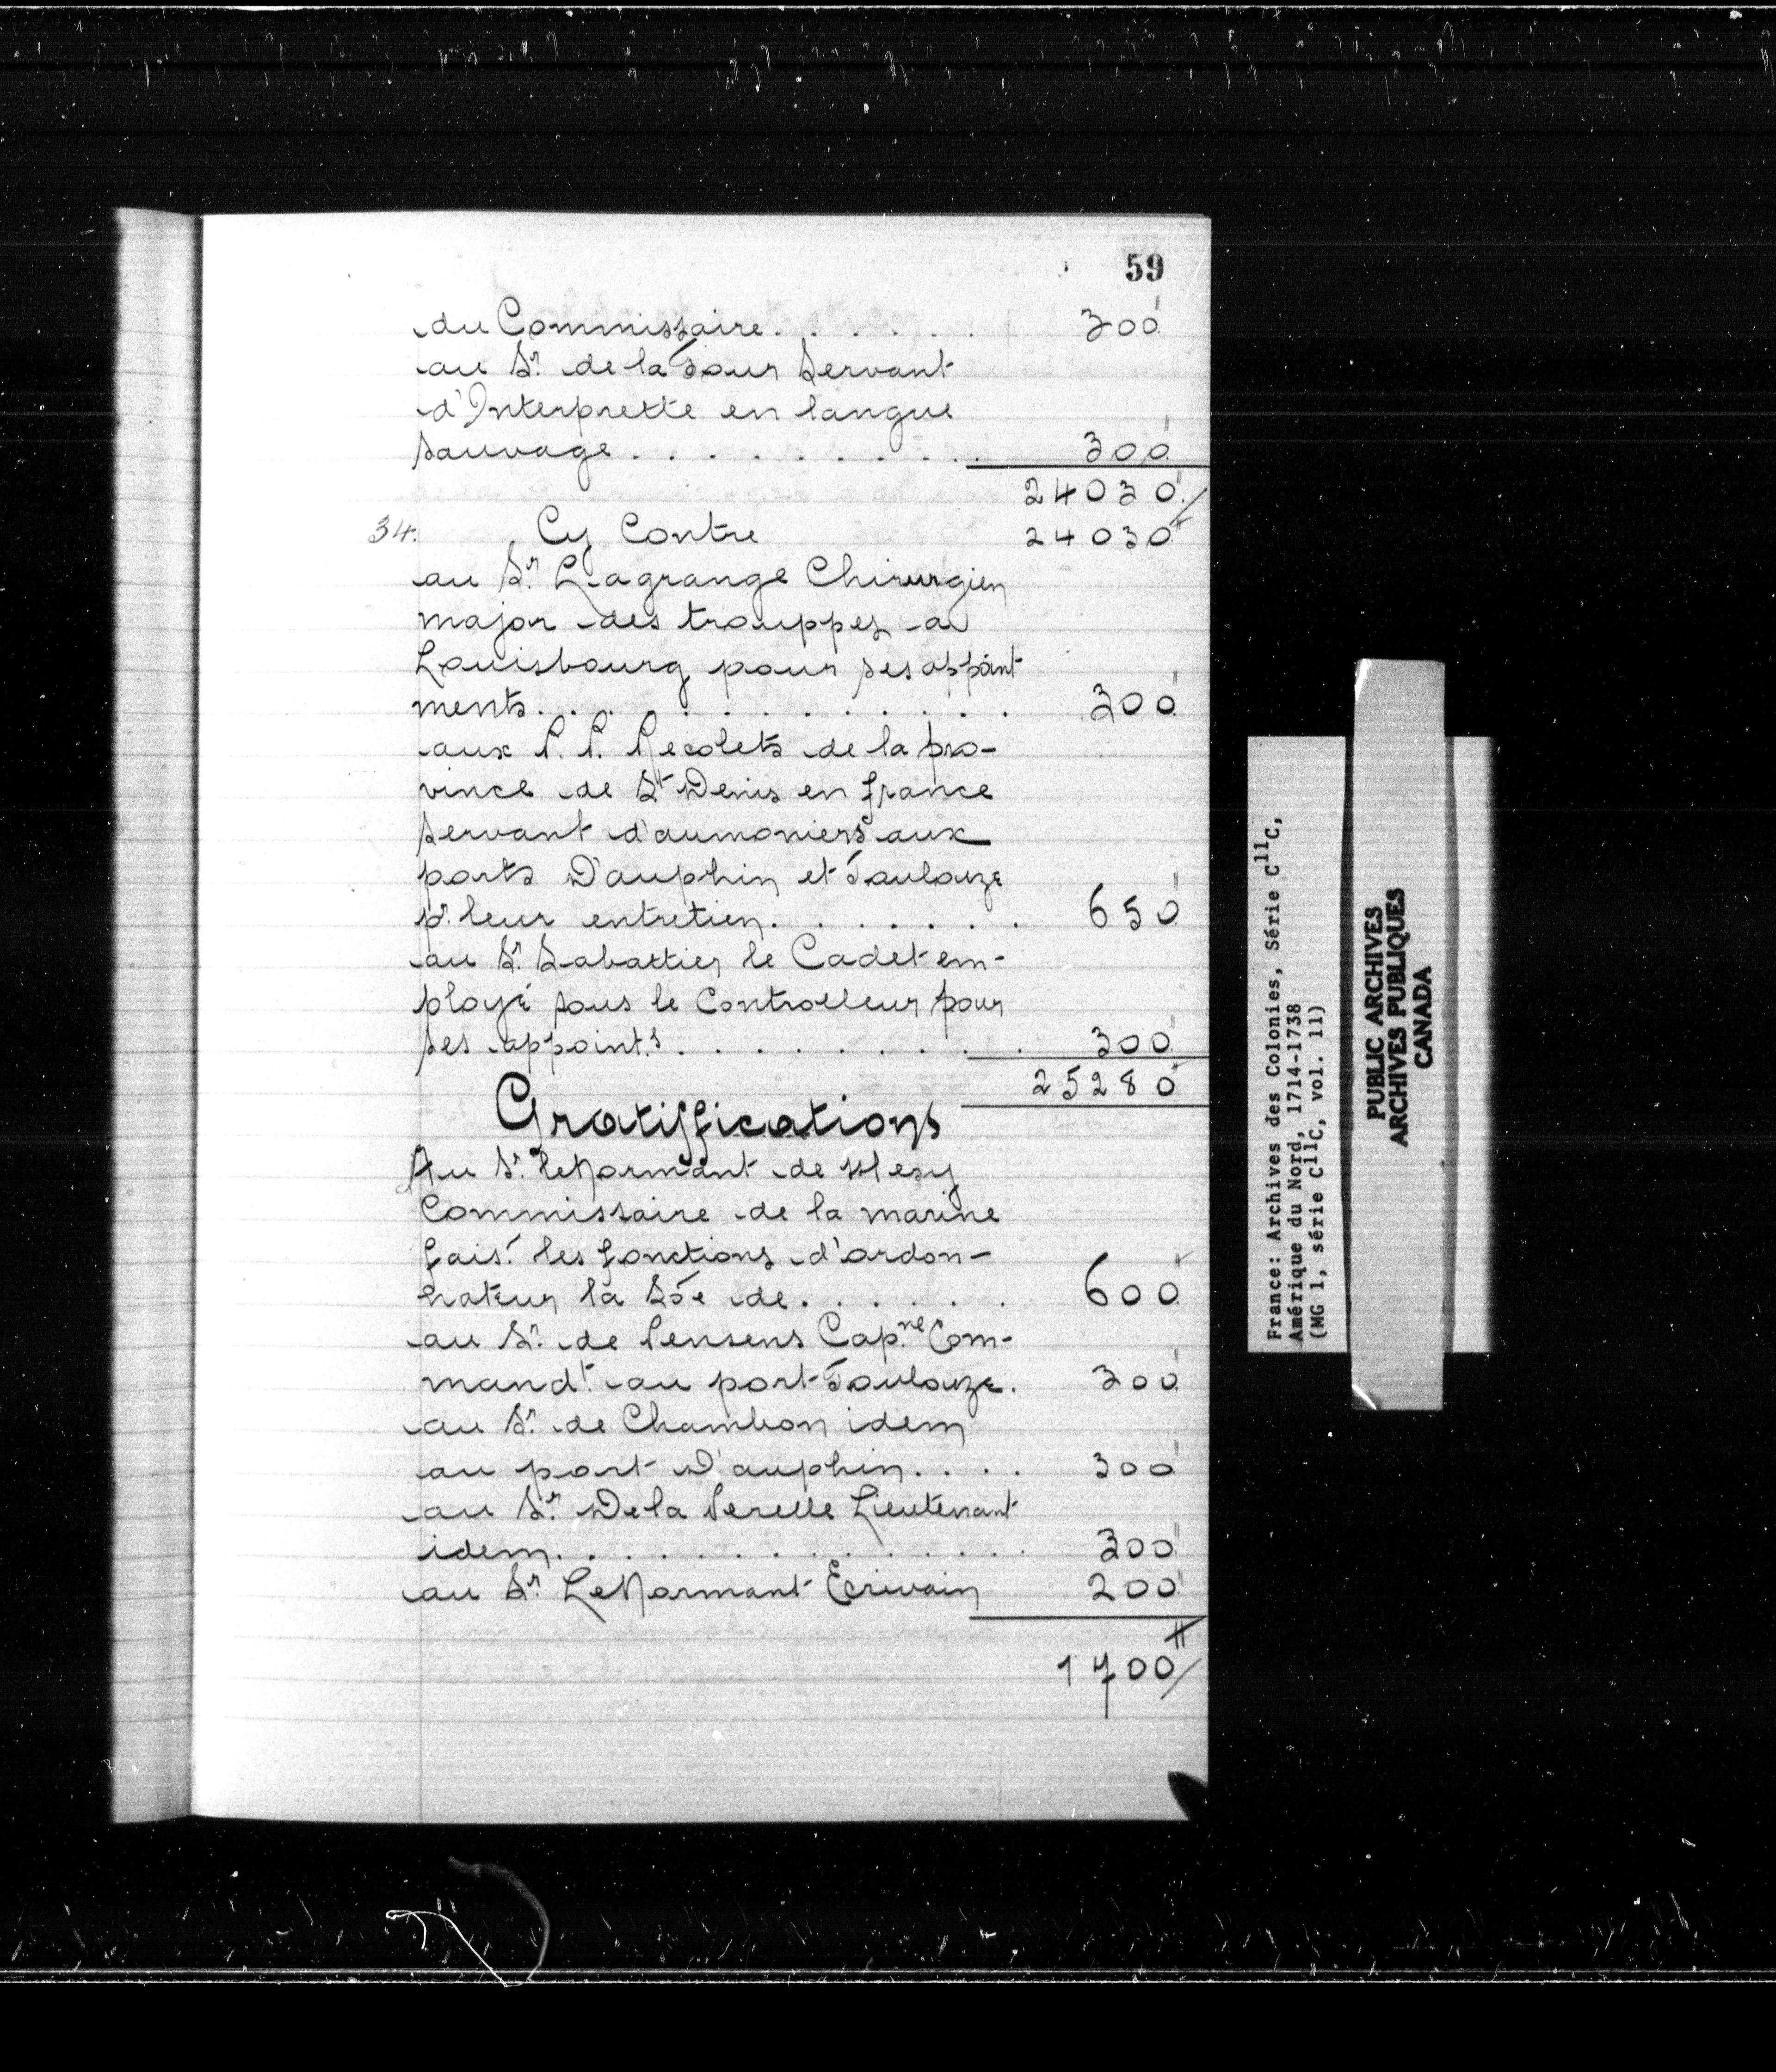 59
du Commissaire. . . . . . 300"
au Sr. de la Tour Servant
d'Interprette en langue
Sauvage. . . . . . . . . . 300"
24030"/
34. Cy Contre 24030"
au Sr. Lagrange Chirurgien
major des trouppes a
Louisbourg pour ses appoint
ments. . . . . . . . . . . 300"
aux P. P. Recolets de la pro-
vince de St Denis en france
servant d'aumoniers aux
ports D'auphin et Toulouze
pr. leur entretien. . . . . . . 650"
au Sr. Sabattier le Cadet em-
ployé sous le Controlleur pour
ses appoint.s . . . . . . . . . 300"
25280"
Gratiffications
Au Sr. leNormant de Mesy
Commissaire de la marine
fais.t les fonctions d'ordon-
nateur la Sõe de. . . . . . 600"
au Sr. de Pensens Cap.ne Com-
mand.t au port Toulouze. 300"
au Sr. de Chambon idem
au port D'auphin. . . . 300"
au Sr. De la Perelle Lieutenant
idem. . . . . . . . . . . . 300"
au Sr. LeNormant Ecrivain 200"
1700"/
France: Archives des Colonies, Série C11C,
Amérique du Nord, 1714-1738
(MG 1, série C11C, vol. 11)
PUBLIC ARCHIVES
ARCHIVES PUBLIQUES
CANADA